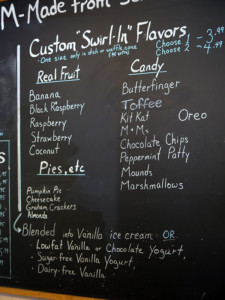 M-Made from S
Custom "Swirl-In" Flavors
-One size only in dish or waffle cone
Choose 1 - 3.99
Choose 2 - 4.99
Real Fruit
Banana
Black Raspberry
Raspberry
Strawberry
Coconut
Pies, etc
Pumpkin Pie
Cheesecake
Graham Crackers
Almonds
Candy
Butterfinger
Toffee
Kit Kat Oreo
M+Ms
Chocolate Chips
Peppermint Patty
Mounds
Marshmallows
Blended into Vanilla ice cream OR
- Lowfat Vanilla or Chocolate Yogurt,
- Sugar-free Vanilla Yogurt,
- Dairy-free Vanilla